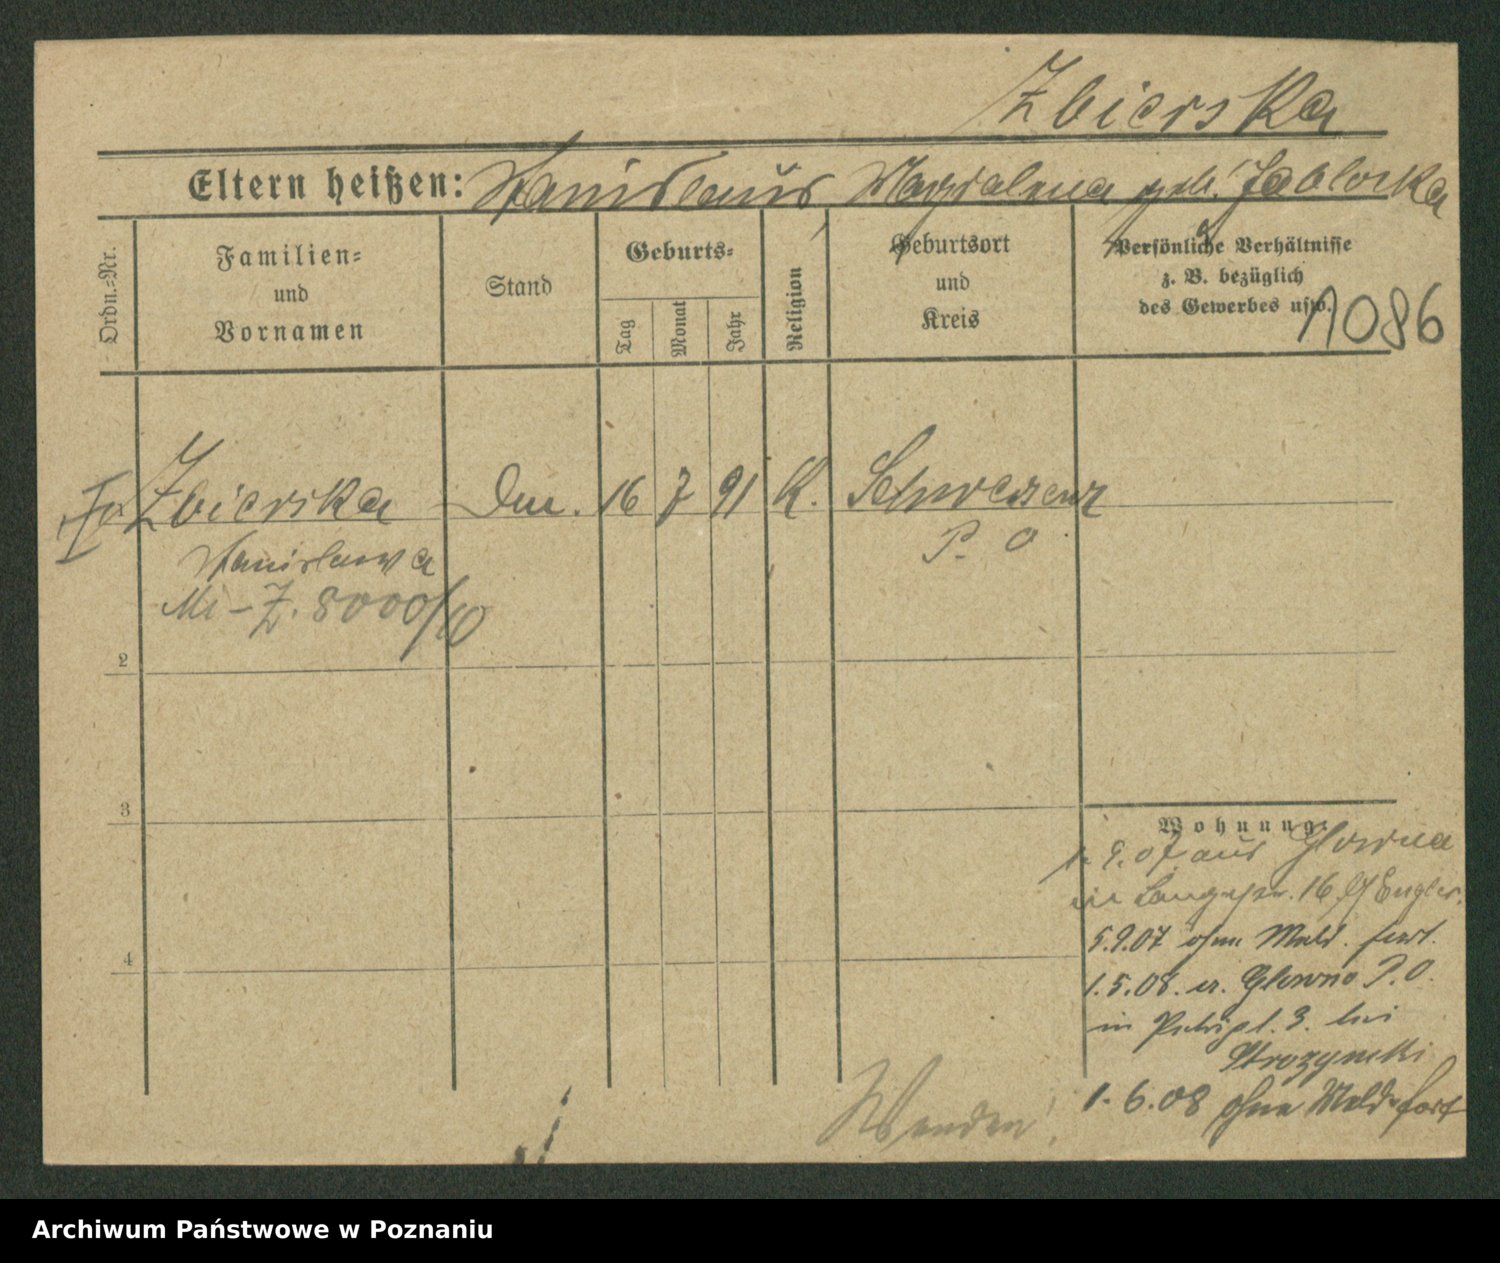 Zbierska
Eltern heißen: Stanislaus Magdalena geb. Jablocka
Ordn.-Nr.
Familien-
und
Vornamen
Stand
Geburts-
Tag
Monat
Jahr
Religion
Geburtsort
und
Kreis
Persönliche Verhältnisse
z. B. bezüglich
des Gewerbes usw.
1086
Zbierska
16 7 91 K. Schwersenz
P. O.
Stanislawa
Mi-Z. 8000/10
2
3
4
Wohnung:
9.07 aus Glowna
in Langestr. 16 Engler.
5.9.07 ohne Meld. fort.
1.5.08. Glowno P.O.
in Petripl. 3. bei
Strozynski
1.6.08 ohne Meld. fort
Wenden!
Archiwum Państwowe w Poznaniu